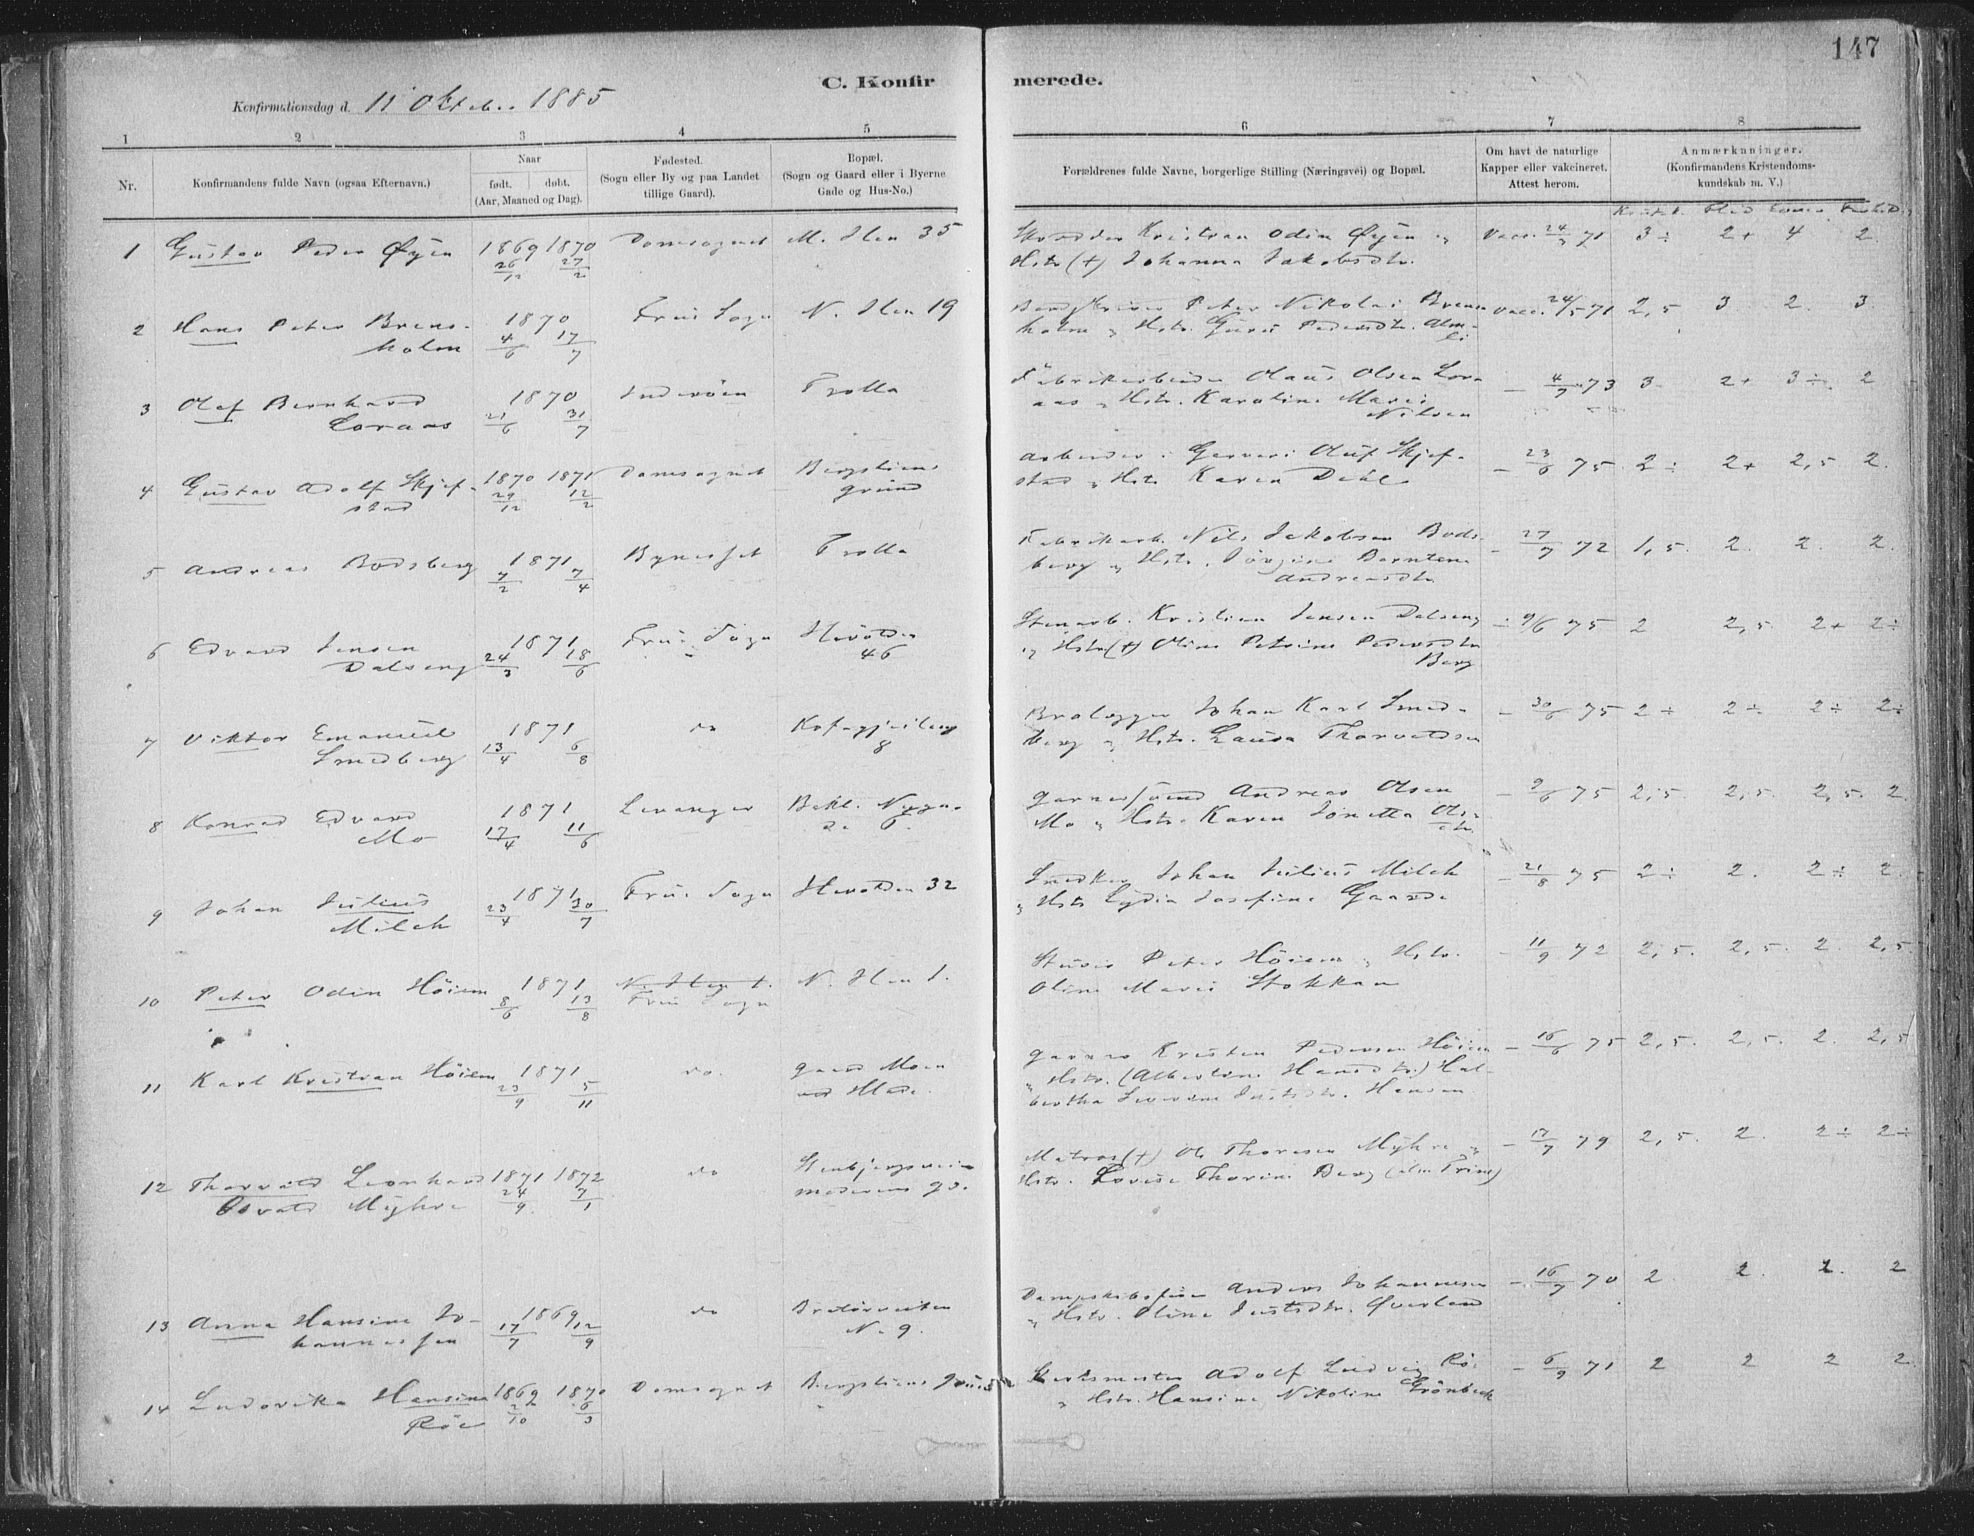 147
C. Konfir merede.
Konfirmationsdag d. 11 Oktober 1885
1 2 3 4 5 6 7 8
Nr.
Konfirmandens fulde Navn (ogsaa Efternavn.)
Naar
født. døbt.
(Aar, Maaned og Dag).
Fødested.
(Sogn eller By og paa Landet
tillige Gaard).
Bopæl.
(Sogn og Gaard eller i Byerne
Gade og Hus-No.)
Forældrenes fulde Navne, borgerlige Stilling (Næringsvei) og Bopæl.
Om havt de naturlige
Kapper eller vakcineret.
Attest herom.
Anmærkninger.
(Konfirmandens Kristendoms-
kundskab m. V.)
1 Gustav Peder Øyen 1869 1870 Domsognet M. Ilen 35 Kristian Odin Øyen Vacc. 24/3 71 3÷ 2+ 4 2.
26/12 27/2 Hstr (+) Johanna Jakobsdtr.
2 Hans Peter Brens- 1870 Frue Sogn N. Ilen 19 Peter Nikolai Brens Vacc. 24/5 71 2,5 3 2. 3
holm 4/6 17/7 holm og Hstr. Guru Pedersdtr. Alm-
li
3 Olaf Bernhard 1870 Inderøen Trolla Fabrikarbeider Olaus Olsen Lor- — 4/7 73 3. 2+ 3÷ 2
Loraas 21/6 31/7 aas og Hstr. Karoline Marie
Nilsen
4 Gustav Adolf Skjef- 1870 1871 Domsognet Bergsliens Arbeider i Garveri Oluf Skjef- — 23/6 75 2÷ 2+ 2,5 2.
stad 29/12 12/2 grund stad og Hstr. Karen Dahl
5 Andreas Bodsberg 1871 Bynesset Trolla Fabrikarb. Nils Jakobsen Bods- — 27/7 72 1,5. 2. 2. 2.
7/2 7/4 berg og Hstr. Jørgine Berntine
Andreasdtr.
6 Edvard Jensen 1871 Frue Sogn Ilevolden Stenarb. Kristian Jensen Dalseng ÷ 9/6 75 2 2,5 2+ 2÷
Dalseng 24/3 18/6 46 og Hstr (+) Oline Petrine Pedersdtr
Berg
7 Viktor Emanuel 1871 do Brolægger Johan Karl Smed- — 30/6 75 2÷ 2÷ 2÷ 2÷
Smedberg 13/4 6/8 8 berg og Hstr. Laura Thorvaldsen
8 Konrad Edvard 1871 Levanger Bakl. Nyga- Garversvend Andreas Olsen — 9/6 75 2,5 2,5. 2,5. 2.
Mo 17/4 11/6 de 6. Mo og Hstr. Karen Jonetta Ols-
dtr.
9 Johan Julius 1871 Frue Sogn Ilevolden 32 Snedker Johan Julius Milch — 21/8 75 2÷ 2. 2÷ 2.
Milch 23/4 30/7 og Hstr Lydia Josefine Gaarde
10 Peter Odin Høiem 1871 N. Ilen 1. N. Ilen 1. Peter Høiem og Hstr. — 11/9 72 2,5. 2,5. 2. 2,5
8/6 13/8 Frue Sogn Oline Marie Stokkan
11 Karl Kristian Høiem 1871 do. Gaard Moen Garver Kristen Pedersen Høiem — 16/6 75 2,5. 2,5. 2. 2,5
23/9 5/11 ved Hlade. og Hstr. (Albertine Hansdtr.) Hal-
bertha Severine Hansen
12 Thorvald Leonhard 1871 1872 do Stenbjergsveien Matros (+) Ole Thoresen Myhre og — 17/7 79 2,5. 2. 2÷ 2÷
Osvald Myhre 24/9 7/1 Hstr. Lovise Thorine Berg (alm Trine)
13 Anna Hansine Jo- 1869 do Bratørveiten Anders Johannesen — 16/7 70 2. 2. 2. 2
hannessen 17/7 12/9 N. 9. og Hstr. Oline Justsdtr. Øverland
14 Ludovika Hansine 1869 1870 Domsognet Bergsliens grund Adolf Ludvig Røe — 6/9 71 2 2 2 2.
Røe 22/10 6/3 og Hstr. Hansine Nikoline Grønbeck